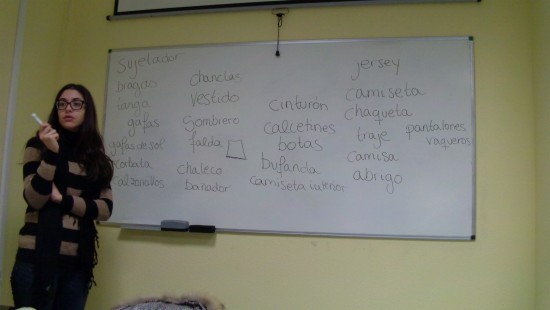 Sujetador
bragas
tanga
gafas
gafas de sol
corbata
calzoncillos
chanclas
vestido
Sombrero
falda
chaleco
bañador
cinturón
calcetines
botas
bufanda
camiseta interior
jersey
camiseta
chaqueta
traje
camisa
abrigo
pantalones
vaqueros